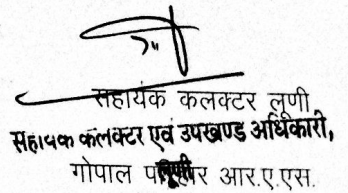 सहायक कलक्टर लूणी
सहायक कलक्टर एवं उपखण्ड अधिकारी,
गोपाल परिहार आर.ए.एस.
लूणी